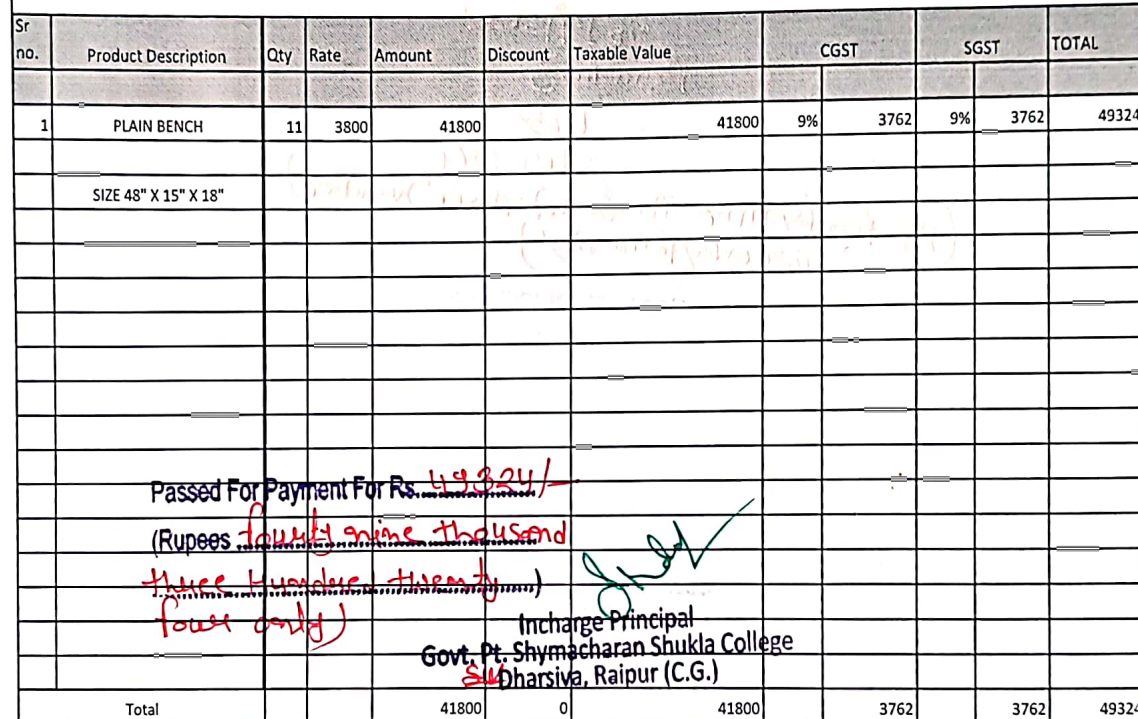 Sr no. Product Description Qty Rate Amount Discount Taxable Value CGST SGST TOTAL
1 PLAIN BENCH 11 3800 41800 41800 9% 3762 9% 3762 49324
SIZE 48" X 15" X 18"
Passed For Payment For Rs. 49324/-
(Rupees fourty nine thousand
three Hundred twenty )
four only)
Incharge Principal
Govt. Pt. Shymacharan Shukla College
Dharsiva, Raipur (C.G.)
Total 41800 0 41800 3762 3762 49324